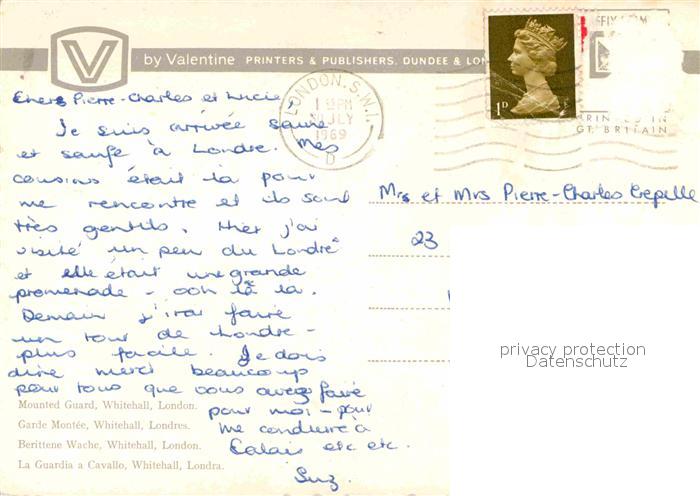 V by Valentine PRINTERS & PUBLISHERS, DUNDEE & LON
LONDON. S.W.1.
1 PM
JLY
1969
D
1D
PRINTED IN
GT. BRITAIN
Chers Pierre-Charles et Lucie,
Je suis arrivée sauve
et saufe à Londre. Mes
cousins était là pour
me rencontre et ils sont
très gentils. Hier j'ai
visité un peu du Londre
et elle était une grande
promenade - ooh là la.
Demain j'irai faire
un tour de Londre -
plus facile. Je dois
dire merci beaucoup
pour tous que vous avez faire
pour moi - pour
me conduire à
Calais etc etc.
Suz.
Mrs et Mrs Pierre-Charles Crepelle
23
privacy protection
Datenschutz
Mounted Guard, Whitehall, London.
Garde Montée, Whitehall, Londres.
Berittene Wache, Whitehall, London.
La Guardia a Cavallo, Whitehall, Londra.